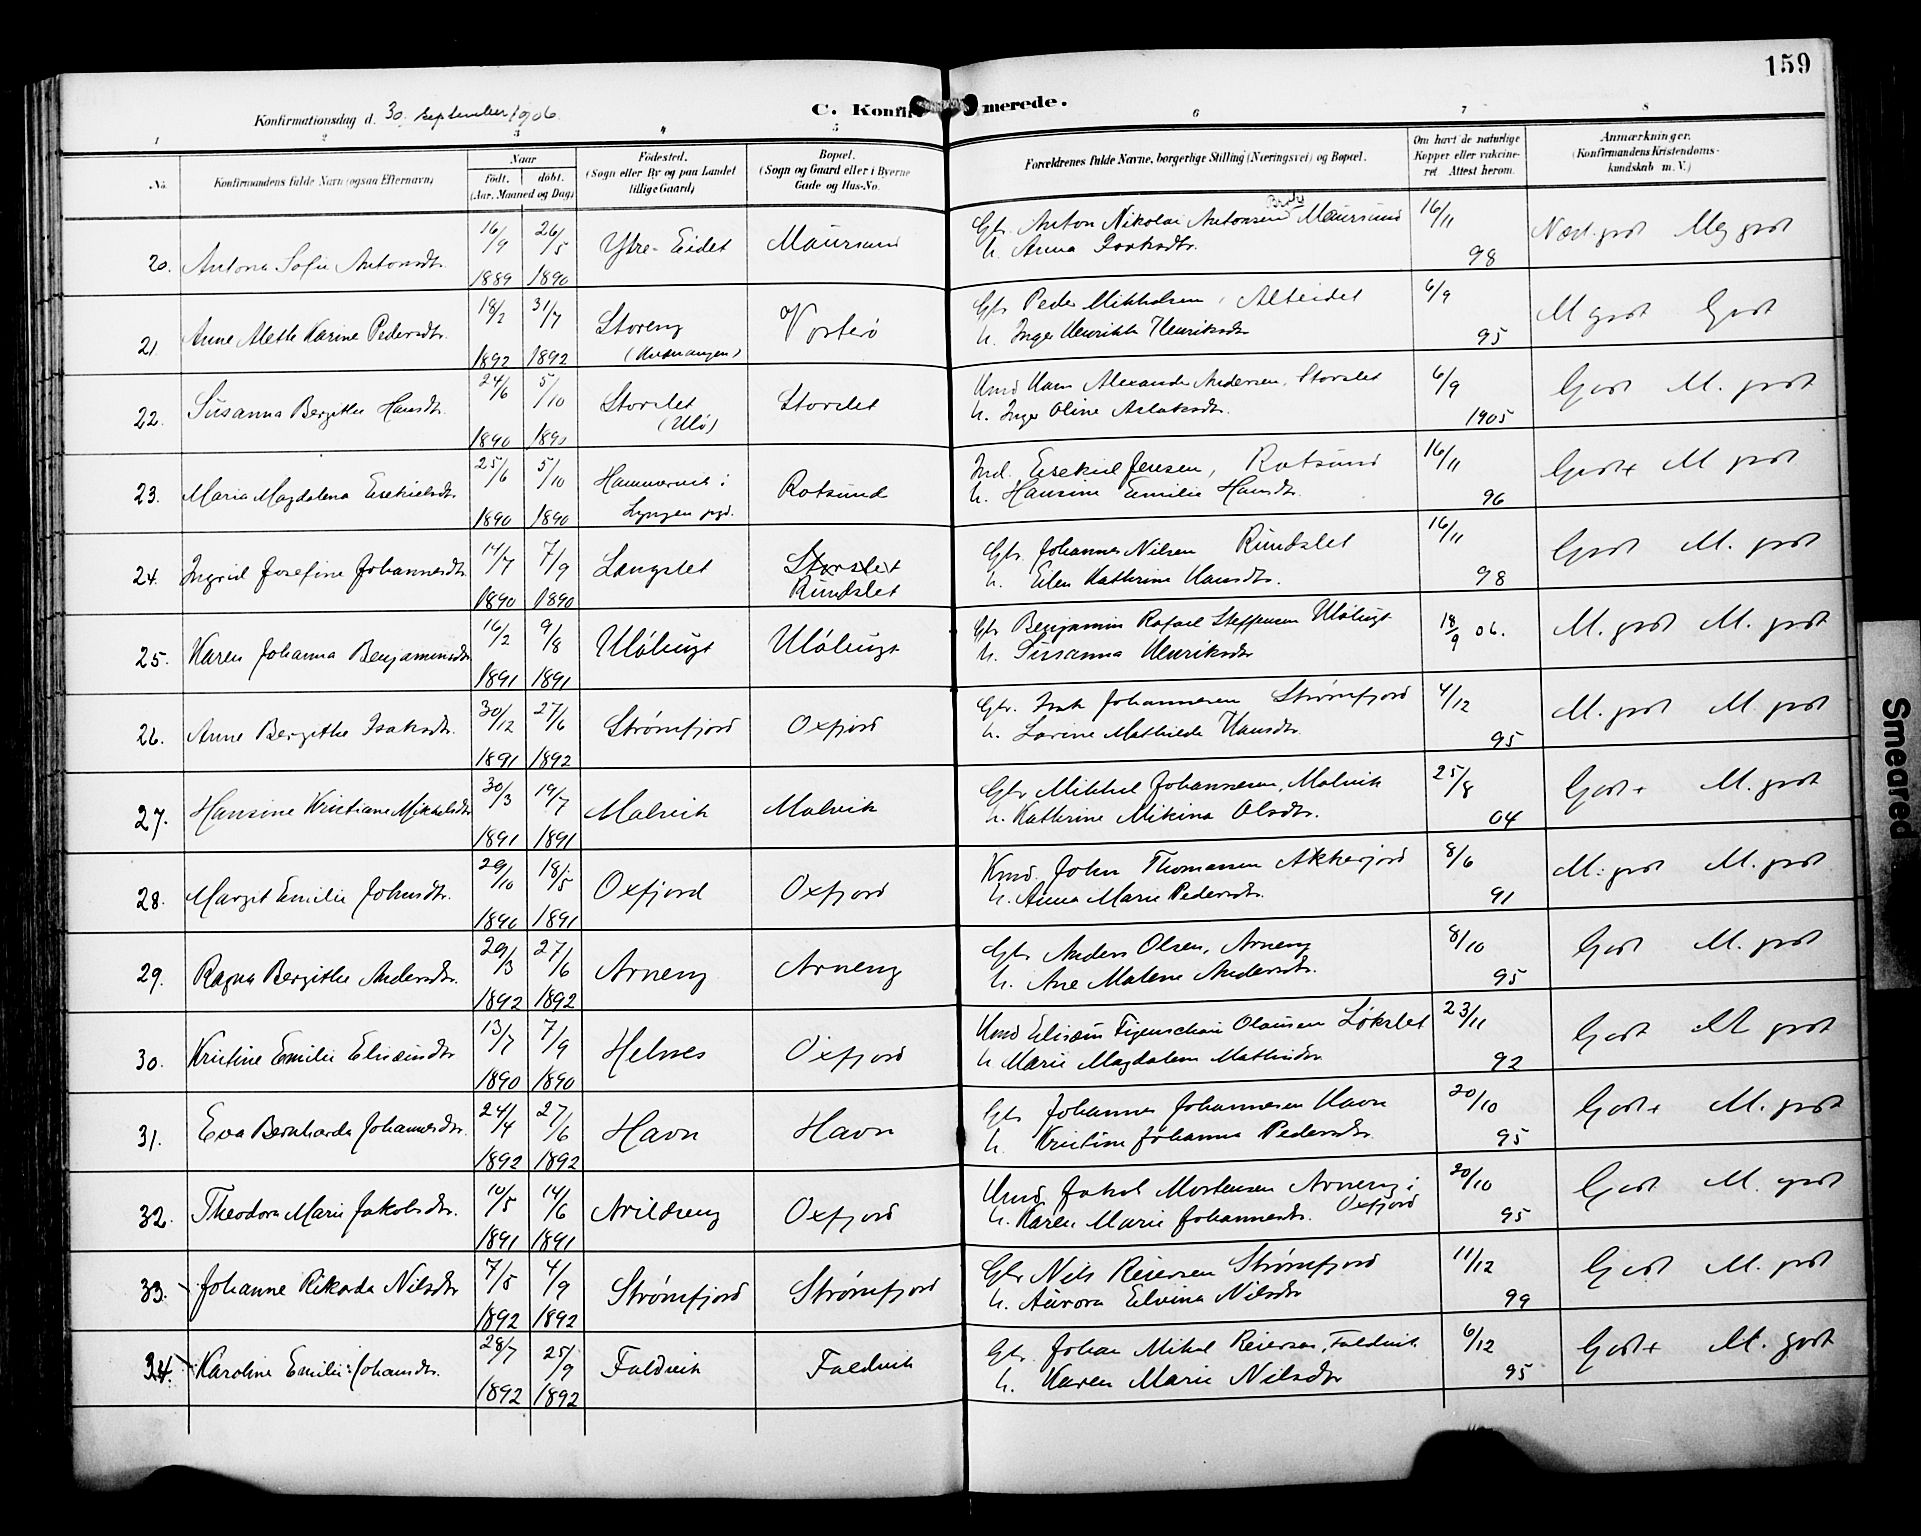 159
C. Konfirmerede.
Konfirmationsdag d. 30 september 1906
1 2 3 4 5 6 7 8
No. Konfirmandens fulde Navn (ogsaa Efternavn) Naar Født. døbt. (Aar. Maaned og Dag) Fødested. (Sogn eller By og paa Landet tillige Gaard) Bopæl. (Sogn og Gaard eller i Byerne Gade og Hus-No. Forældrenes fulde Navne, borgerlige Stilling (Næringsvei) og Bopæl. Om havt de naturlige Kopper eller vakcineret Attest herom. Anmærkninger. (Konfirmandens Kristendomskundskab m. V.)
20. Antona Sofie Antonsdtr. 16/9 1889 26/5 1890 Ytre-Eidet Maursund Gbr. Anton Nikolai Antonsen Maursund
h. Anna Isaksdtr. 16/11 98 Næst. godt Meg godt
21. Anne Mette Karine Pedersdtr. 18/2 1892 31/7 1892 Storeng (Kvænangen) Vorterø Gbr Peder Mikkelsen, Alteidet
h. Inger Henrikke Henriksdtr 6/9 95 M godt Godt
22. Susanna Bergithe Hansdtr. 24/6 1890 5/10 1890 Storslet (Ulø) Storslet Kmd Hans Alexander Andersen, Storslet
h. Inger Oline Aslaksdtr. 6/9 1905 Godt M. godt
23. Maria Magdalena Esekielsdtr. 25/6 1890 5/10 1890 Hammervik i Lyngen pgd. Rotsund Ind. Esekiel Jensen, Rotsund
h. Hansine Emilie Hansdtr. 16/11 96 Godt+ M godt
24. Ingrid Josefine Johannesdtr. 14/7 1890 7/9 1890 Langslet Storslet Rundslet Gbr. Johannes Nilsen Rundslet
h. Elen Kathrine Hansdtr. 16/11 98 Godt M. godt
25. Karen Johanna Benjaminsdtr 16/2 1891 9/8 1891 Uløbugt Uløbugt Gbr Benjamin Rafael Steffensen Uløbugt
h. Susanna Henriksdtr 18/9 06. M. godt M. godt
26. Anne Bergithe Isaksdtr. 30/12 1891 27/6 1892 Strømfjord Oxfjord Gbr. Isak Johannesen Strømfjord
h. Lorine Mathilde Hansdtr. 4/12 95 M. godt M. godt
27. Hansine Kristiane Mikkelsdtr 30/3 1891 19/7 1891 Malvik Malvik Gbr Mikkel Johannesen, Malvik
h. Kathrine Mikina Olsdtr. 25/8 04 Godt+ M. godt
28. Margit Emilie Johnsdtr. 29/10 1890 18/5 1891 Oxfjord Oxfjord Kmd. John Thomassen Akkerfjord
h. Anna Marie Pedersdtr. 8/6 91 M. godt M. godt
29. Ragna Bergithe Andersdtr. 29/3 1892 27/6 1892 Arneng Arneng Gbr Anders Olsen, Arneng
h. Ane Malene Andersdtr. 8/10 95 Godt M. godt
30. Kristine Emilie Eliseusdtr 13/7 1890 7/9 1890 Helnes Oxfjord Kmd Eliseus Figenschau Olausen Løkslet
h Marie Magdalene Mathisdtr 23/11 92 Godt M godt
31. Eva Bernharda Johannesdtr. 24/4 1892 27/6 1892 Havn Havn Gbr Johannes Johannesen Havn
h. Kristine Johanna Pedersdtr. 20/10 95 Godt+ M. godt
32. Theodora Marie Jakobsdtr. 10/5 1891 14/6 1891 Arildseng Oxfjord Kmd Jakob Mortensen Arneng i Oxfjord
h. Karen Marie Johannesdtr. 20/10 95 Godt M. godt
33. Johanne Rikarda Nilsdtr 7/5 1892 4/9 1892 Strømfjord Strømfjord Gbr Nils Reiersen Strømfjord
h. Aurora Elvina Nilsdtr 11/12 99 Godt M. godt
34. Karoline Emilie Johansdtr. 28/7 1892 25/9 1892 Faldvik Faldvik Gbr. Johan Mikal Reiersen, Faldvik
h. Karen Marie Nilsdtr 6/12 95 Godt+ M. godt
Smeared